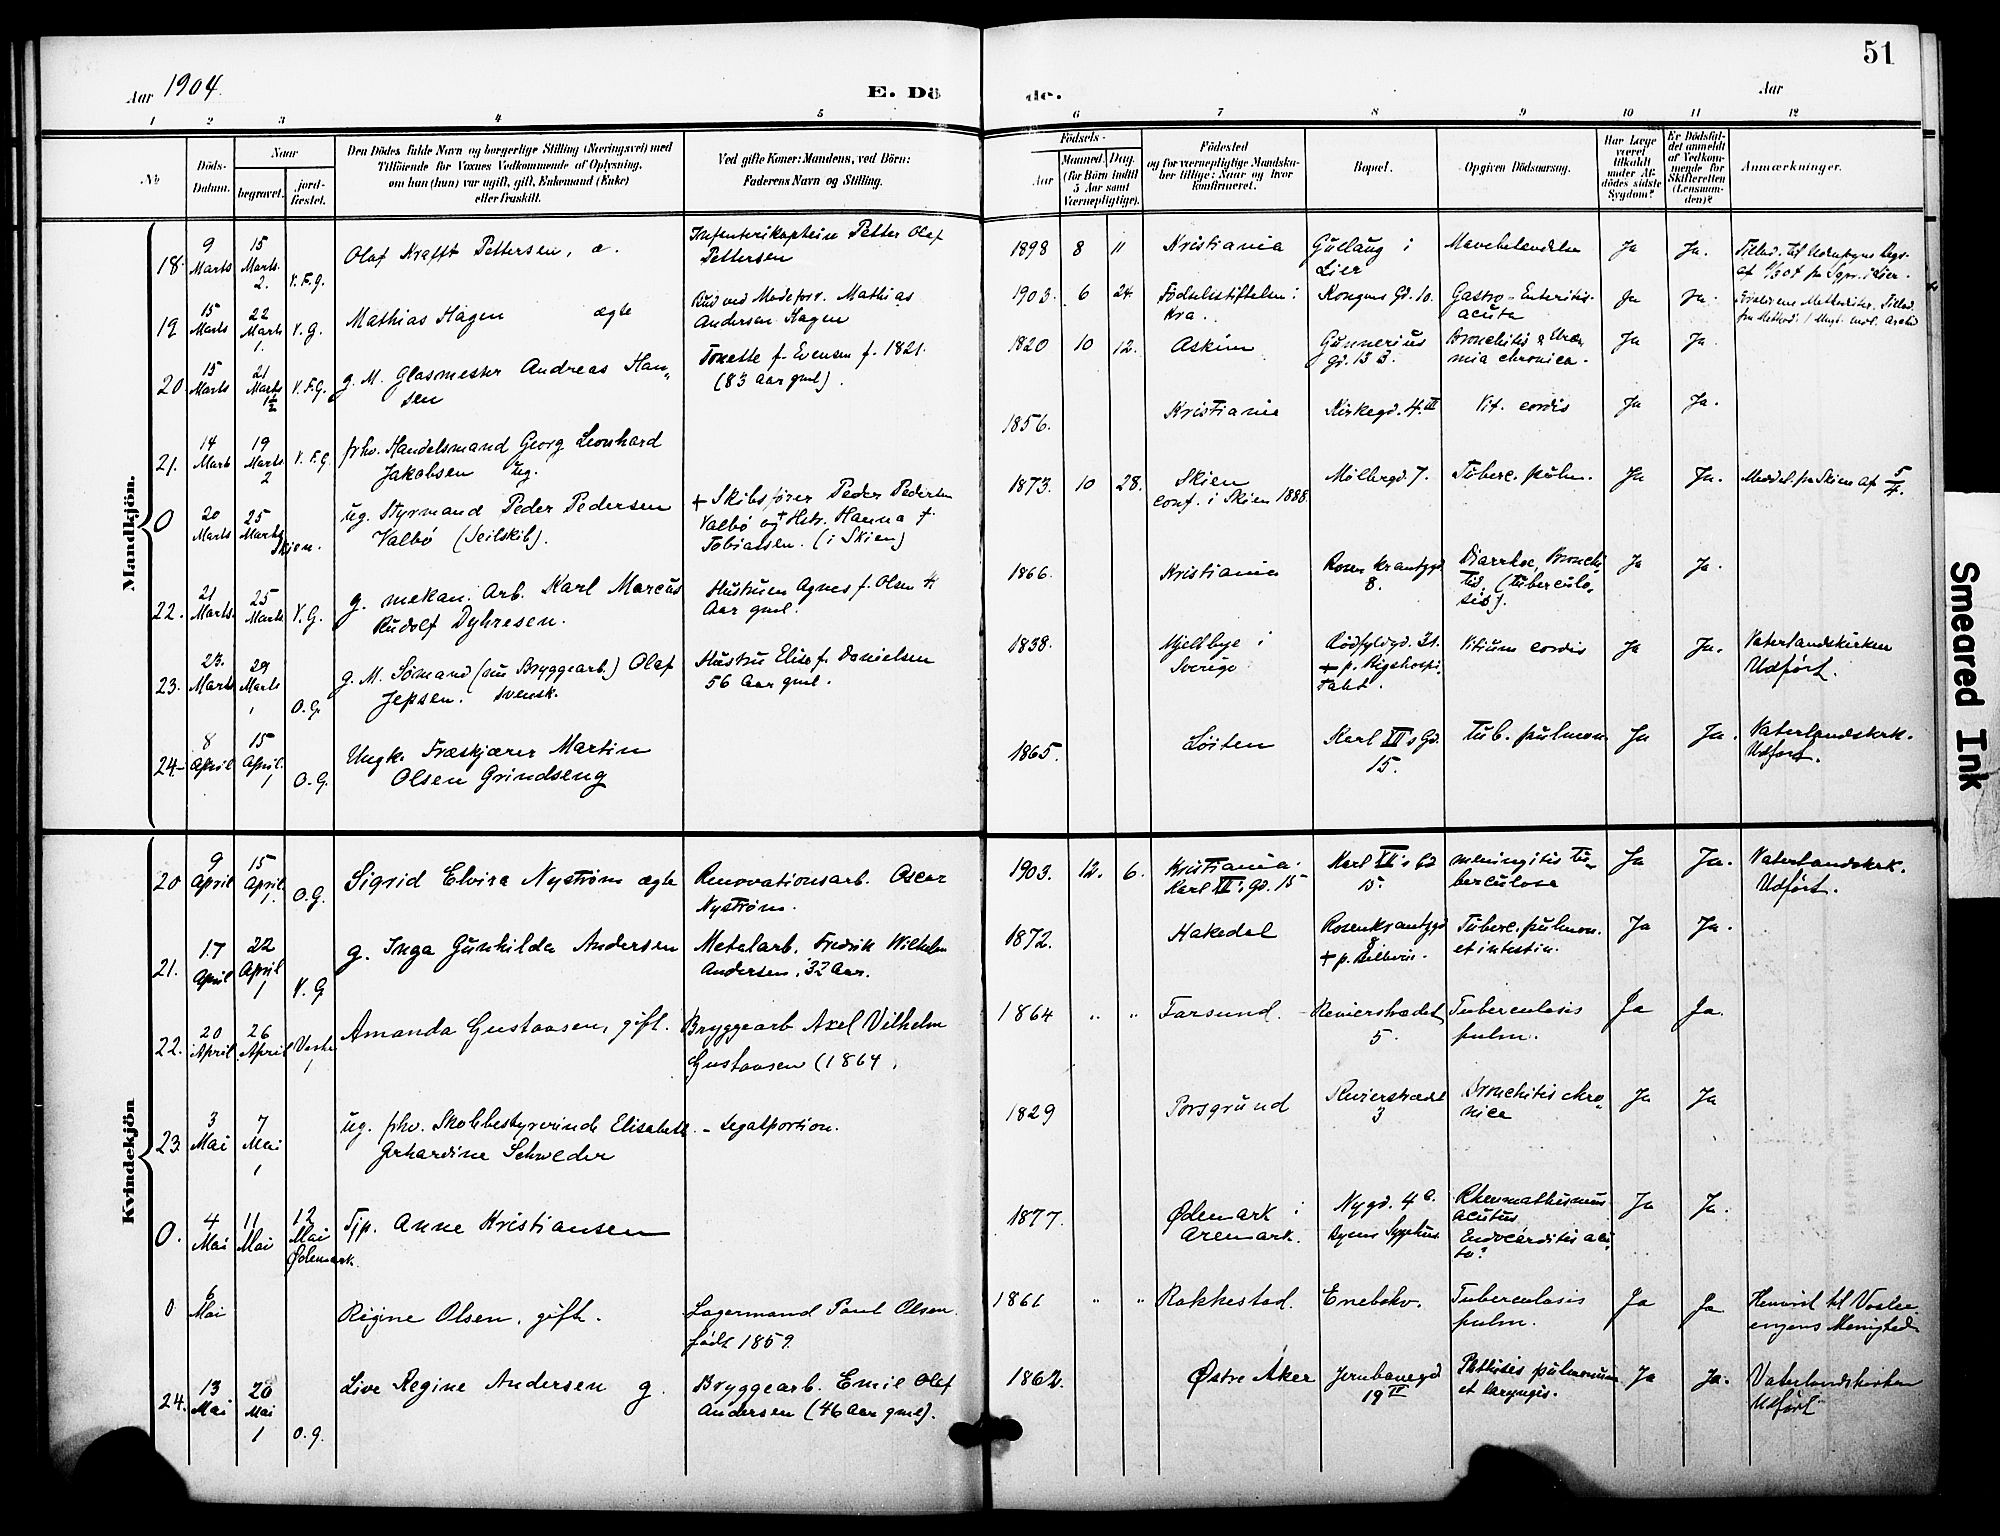 51
Aar 1904.
E. Dö
de.
Aar
1 2 3 4 5
6 7 8 9 10 11 12
No
Döds-
Datum.
Naar
begravet.
jord-
fæstet.
Den Dödes fulde Navn og borgerlige Stilling (Næringsvei) med
Tilföiende for Voxnes Vedkommende af Oplysning,
om han (hun) var ugift, gift, Enkemand (Enke)
eller fraskilt.
Ved gifte Koner: Mandens, ved Börn:
Faderens Navn og Stilling.
Födsels-
Aar
Maaned. Dag.
(for Börn indtil
5 Aar samt
Værnepligtige).
Födested
og for værnepligtige Mandska-
ber tillige: Naar og hvor
konfirmeret.
Bopæl.
Opgiven Dödsaarsag.
Har Læge
været
tilkaldt
under Af-
dödes sidste
Sygdom?
Er Dödsfal-
det anmeldt
af Vedkom-
mende for
Skifteretten
(Lensman-
den)?
Anmærkninger.
Mandkjön.
18. 9 Marts 15 Marts. 2. V.F.G. Olaf Krafft Pettersen, æ. Infanterikaptein Petter Olaf
Pettersen
1898 8 11 Kristiania Gullaug i
Lier Ja Ja.
19 15 Marts 22 Marts 1. V.G. Mathias Hagen ægte Mathias
Andersen Hagen
1903. 6 24. Födselsstiftelsen i
Kra. Kongens Gd. 10. Gastro-Enteritis
acuta Ja Ja.
20. 15 Marts 21 Marts 1½ V.F.G. g. M. Glasmester Andreas Han-
sen Tonette f. Evensen f. 1821.
(83 Aar gml).
1820 10 12. Askim Gunnerius
gd. 13 3. Bronchitis &
chronica. Ja Ja.
21. 14 Marts 19 Marts 2 V.F.G. frhv. Handelsmand Georg Leonhard
Jakobsen ug.
1856. Kristiania Kirkegd. 4.III Vit. cordis Ja Ja.
0 20 Marts 25 Marts Skien. ug. Styrmand Peder Pedersen
Valbö (Seilskib). + Skibsförer Peder Pedersen
Valbö og + Hstr. Hanna f.
Tobiassen. (i Skien)
1873. 10 28. Skien
conf. i Skien 1888. Möllergd. 7. Tuberc. pulm. Ja Ja. Meddel. fra Skien af 5/4.
22. 21 Marts. 25 Marts V.G. g. mekan. Arb. Karl Marcus
Rudolf Dyhresen. Hustruen Agnes f. Olsen
Aar gml.
1866. Kristiania Rosenkrantzgd
8. Diarrhoe, Bronchi-
tis, (tuberculo-
sis). Ja Ja.
23. 23. Marts 29 Marts 1 O.G. g. M. Sömand (nu Bryggearb.) Olaf
Jepsen. svensk. Hustru Elise f. Danielsen
56 Aar gml.
1838. Mjellbye i
Sverige Rödfyldgd. 21.
+ p. Rigshospi-
talet. Vitium cordis Ja Ja. Vaterlandskirken
Udfört.
24. 8 April 15 April. 1 O.G. Ungk. Fræskjærer Martin
Olsen Grindseng
1865. Löiten Karl XII's Gd.
15. Tub. pulmon. Ja Ja. Vaterlandskrk.
Udfört.
Kvindekjön
20 9 April 15 April. 1. O.G. Sigrid Elvira Nyström ægte Renovationsarb. Oscar
Nyström.
1903. 12. 6. Kristiania.
Karl XII's Gd. 15 Karl XII's Gd
15. meningitis tu-
berculosa Ja Ja. Vaterlandskrk.
Udfört.
21. 17 April 22 April 1 V.G g. Inga Gunhilda Andersen Metalarb. Fredrik Wilhelm
Andersen, 32 Aar.
1872. Hakedal Rosenkrantzgd
8 Tuberc. pulmon.
et intestin. Ja Ja.
22. 20 April 26 April 1 Amanda Gustavsen, gift. Bryggearb Axel Vilhelm
Gustavsen (1864
1864 " " Farsund. Revierstrædet
5. Tuberculosis
pulm. Ja Ja.
23. 3 Mai 7 Mai 1 ug. frhv. Skolebestyrerinde Elisabeth
Gerhardine Schweder - Legatportion.
1829 Porsgrund Revierstrædet
3 Bronchitis chro-
nica Ja Ja
0. 4 Mai 11 Mai 12 Mai Ödemark. Tjp. Anne Kristiansen
1877. Ödemark i
Aremark. Nygd. 4 a.
Byens Sygehus. Rheumathismus
acutus
Endocarditis acu-
ta? Ja Ja.
0 6 Mai Regine Olsen, gift. Lagermand Paul Olsen.
födt 1859.
1861 " " Rakkestad. Enebakv. Tuberculosis
pulm. Ja Ja Henvist til Vaaler-
engens Menighed.
24. 13 Mai 20 Mai 1 O.G. Live Regine Andersen g. Bryggearb. Emil Olaf
Andersen (46 Aar gml).
1862. Östre Aker Jernbanegd
19 IV Phthisis pulmonum
et laryngis. Ja Ja. Vaterlandskirken
Udfört
Smeared Ink